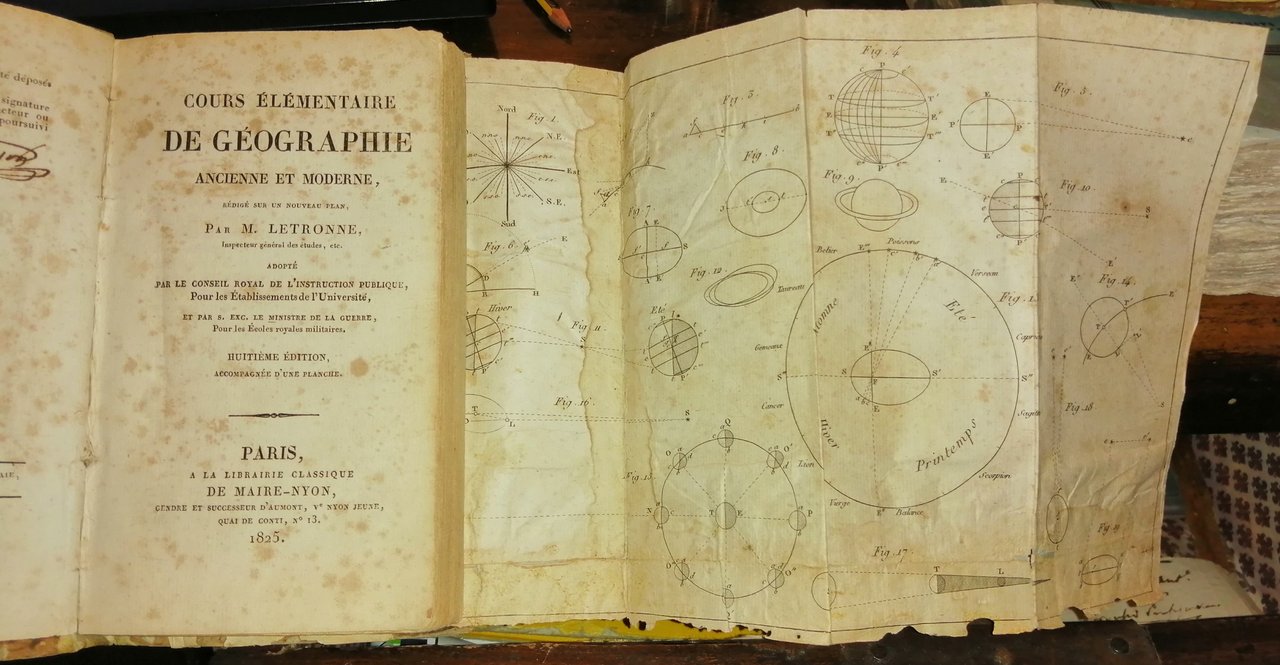 té déposés
signature
cteur ou
poursuivi
COURS ÉLÉMENTAIRE
DE GÉOGRAPHIE
ANCIENNE ET MODERNE,
RÉDIGÉ SUR UN NOUVEAU PLAN,
PAR M. LETRONNE,
Inspecteur général des études, etc.
ADOPTÉ
PAR LE CONSEIL ROYAL DE L'INSTRUCTION PUBLIQUE,
Pour les Établissements de l'Université,
ET PAR S. EXC. LE MINISTRE DE LA GUERRE,
Pour les Écoles royales militaires.
HUITIÈME ÉDITION,
ACCOMPAGNÉE D'UNE PLANCHE.
PARIS,
A LA LIBRAIRIE CLASSIQUE
DE MAIRE-NYON,
GENDRE ET SUCCESSEUR D'AUMONT, Ve NYON JEUNE,
QUAI DE CONTI, N° 13.
1825.
Nord
Fig. 1.
N.E.
Est
S.E.
Sud
Fig. 3
Fig. 4
Fig. 5.
Fig. 6
Fig. 7
Fig. 8.
Fig. 9
Fig. 10
Hiver
Fig. 11
Eté
Fig. 12
Fig. 13
Fig. 14
Belier
Poissons
Verseau
Taureau
Capric
Gemeaux
Cancer
Sagitt
Lion
Scorpion
Vierge
Balance
Automne
Eté
Hiver
Printemps
Fig. 16
Fig. 17
Fig. 18